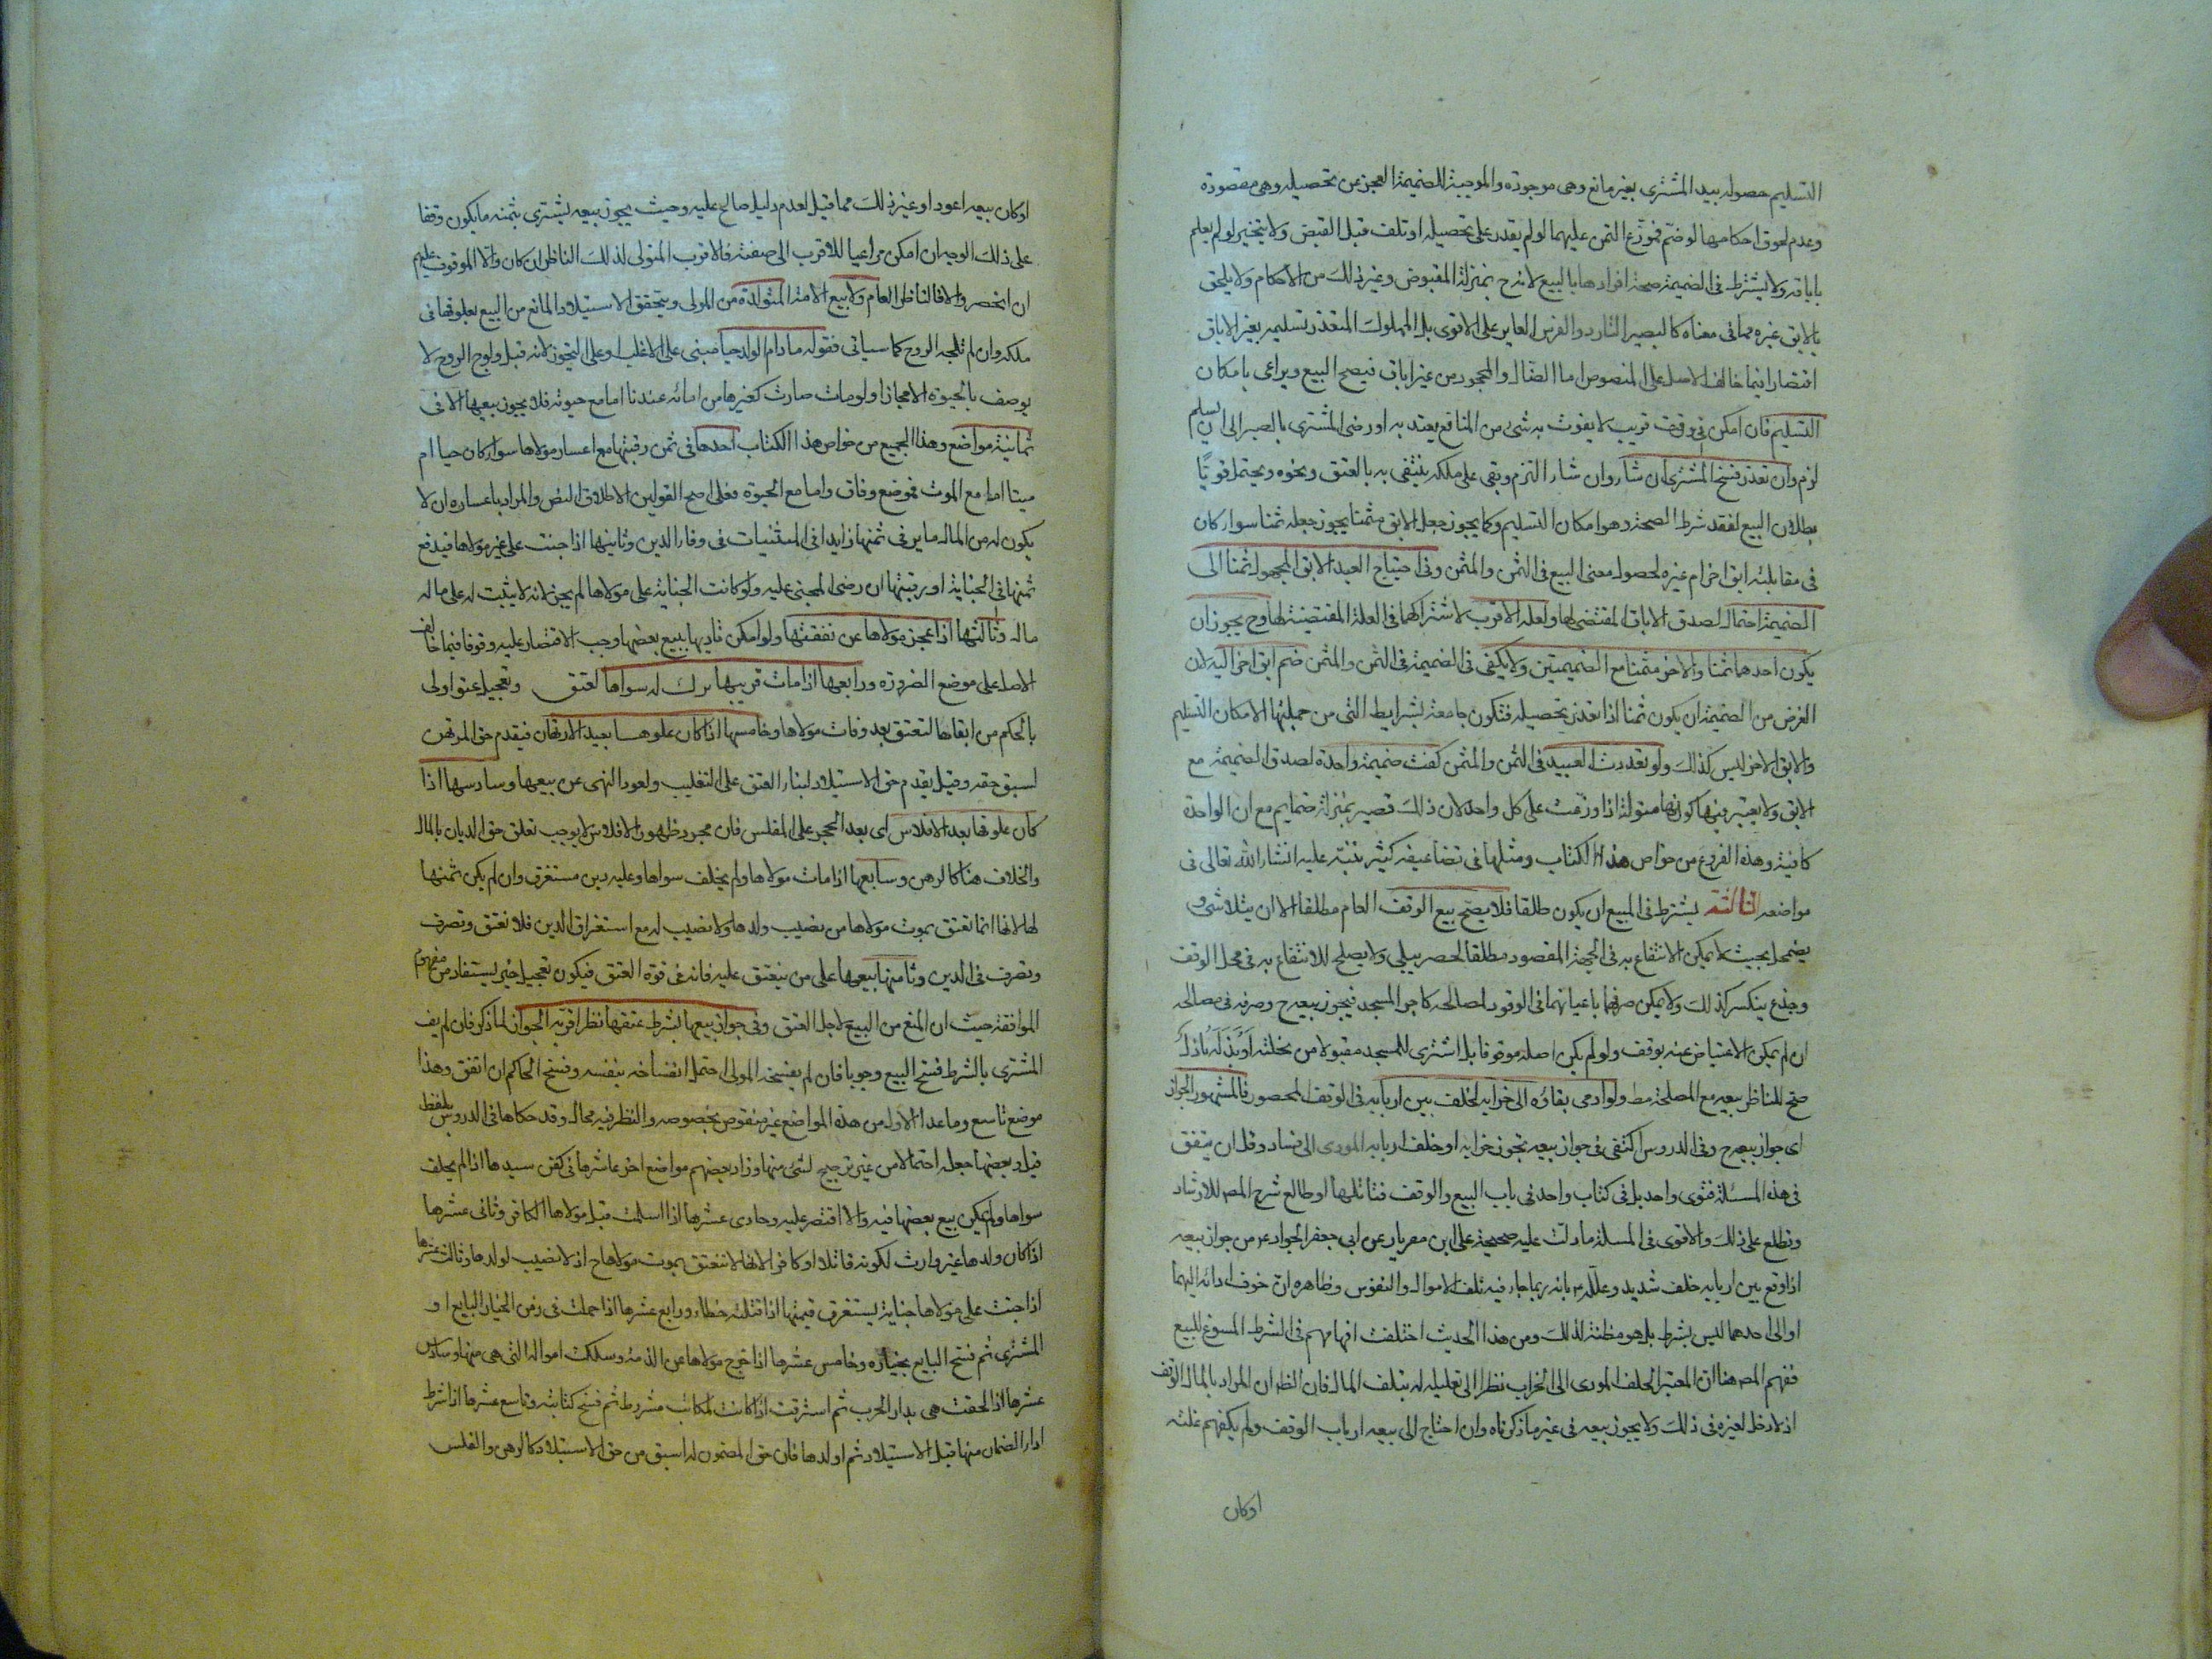 التسليم حصوله بيد المشترى بغير مانع وهى موجودة والموجبة للضميمة العجز عن تحصيله وهى مفقودة
وعدم لحوق احكامها لو ضم فيوزع الثمن عليهما لو لم يقدر على تحصيله او تلف قبل القبض ولا يتخير لو لم يعلم
باباقه ولا يشترط فى الضميمة صحة افرادها بالبيع لانه ح بمنزلة المقبوض وغير ذلك من الاحكام ولا يلحق
بالابق غيره مما فى معناه كالبعير الشارد والفرس العاير على الاقوى بل المملوك المتعذر تسليمه بغير الاباق
اقتصارا فيما خالف الاصل على المنصوص اما الضال والمجحود من غير اباق فيصح البيع ويراعى بامكان
التسليم فان امكن فى وقت قريب لا يفوت به شىء من المنافع يعتد به او رضى المشترى بالصبر الى ان يسلم
لزم وان تعذر فسخ المشترى ان شاء وان شاء التزم وبقى على ملكه ينتفى به بالعتق ونحوه ويحتمل قويا
بطلان البيع لفقد شرط الصحة وهو امكان التسليم وكما يجوز جعل الابق مثمنا يجوز جعله ثمنا سواء كان
فى مقابلته ابق اخر ام غيره لحصول معنى البيع فى الثمن والمثمن وفى احتياج العبد الابق المجعول ثمنا الى
الضميمة احتمال لصدق الاباق المقتضى لها ولعله الاقرب لاشتراكهما فى العلة المقتضية لها وح يجوز ان
يكون احدهما ثمنا والاخر مثمنا مع الضميمتين ولا يكفى فى الضميمة فى الثمن والمثمن ضم ابق اخر اليه لان
الغرض من الضميمة ان يكون ثمنا اذا تعذر تحصيله فتكون جامعة لشرايطه التى من جملتها امكان التسليم
والابق الاخر ليس كذلك ولو تعددت العبيد فى الثمن والمثمن كفت ضميمة واحدة لصدق الضميمة مع
الابق ولا يعتبر فيها كونها متمولة اذا وزعت على كل واحد لان ذلك تصير بمنزلة ضمايم مع ان الواحدة
كافية وهذه الفروع من خواص هذا الكتاب ومثلها فى تضاعيفه كثير ننبه عليه انشاء الله تعالى فى
مواضعه الثالثة يشترط فى المبيع ان يكون طلقا فلا يصح بيع الوقف العام مطلقا الا ان يتلاشى و
يضمحل بحيث لا يمكن الانتفاع به فى الجهة المقصود مطلقا كحصر يبلى ولا يصلح للانتفاع به فى محل الوقف
وجذع ينكسر كذلك ولا يمكن صرفهما باعيانهما فى الوقود لمصالحه كاجر المسجد فيجوز بيعه ح وصرفه فى مصالحه
ان لم يمكن الاعتياض عنه بوقف ولو لم يكن اصله موقوفا بل اشترى للمسجد مقبولا من غلته او بذله باذل
صح للناظر بيعه مع المصلحة مط ولو ادى بقاؤه الى خرابه لخلف بين اربابه فى الوقف المحصور فالمشهور الجواز
اى جواز بيعه ح وفى الدروس اكتفى فى جواز بيعه بخوف خرابه او خلف اربابه المودى الى فساد وقل ان يتفق
فى هذه المسئلة فتوى واحد بل فى كتاب واحد فى باب البيع والوقف فتاملها او طالع شرح المص للارشاد
وتطلع على ذلك والاقوى فى المسئلة ما دلت عليه صحيحة على ابن مهزيار عن ابى جعفر الجواد ع من جواز بيعه
اذا وقع بين اربابه خلف شديد وعلله م بانه ربما جاء فيه تلف الاموال والنفوس وظاهره ان خوف ادائه اليهما
او الى احدهما ليس بشرط بل هو مظنة لذلك ومن هذا الحديث اختلفت افهامهم فى الشرط المسوغ للبيع
ففهم المص هنا ان المعتبر الخلف المودى الى الخراب نظرا الى تعليله له بتلف المال فان الظ ان المراد بالمال الوقف
اذ لا دخل لغيره فى ذلك ولا يجوز بيعه فى غير ما ذكرناه وان احتاج الى بيعه ارباب الوقف ولم يكفهم غلته
اوكان
اوكان بيعه اعود او غير ذلك مما قيل لعدم دليل صالح عليه وحيث يجوز بيعه يشترى بثمنه ما يكون وقفا
على ذلك الوجه ان امكن مراعيا للاقرب الى صفته فالاقرب المتولى لذلك الناظر ان كان والا الموقوف عليهم
ان انحصروا والا فالناظر العام ولا بيع الامة المتولدة من المولى ويتحقق الاستيلاد المانع من البيع بعلوقها فى
ملكه وان لم تلجه الروح كما سياتى فقوله ما دام الولد حيا مبنى على الاغلب او على التجوز لانه قبل ولوج الروح لا
يوصف بالحيوة الا مجازا ولو مات صارت كغيرها من امائه عندنا اما مع حيوته فلا يجوز بيعها الا فى
ثمانية مواضع وهذا الجميع من خواص هذا الكتاب احدها فى ثمن رقبتها مع اعسار مولاها سواء كان حيا ام
ميتا اما مع الموت فموضع وفاق واما مع الحيوة فعلى اصح القولين لاطلاق النص والمراد باعساره ان لا
يكون له من المال ما يوفى ثمنها زايدا فى المستثنيات فى وفاء الدين وثانيها اذا جنت على غير مولاها فيدفع
ثمنها فى الجناية او رقبتها ان رضى المجنى عليه ولو كانت الجناية على مولاها لم يجز لانه لا يثبت له على ماله
مال وثالثها اذا عجز مولاها عن نفقتها ولو امكن تاديها ببيع بعضها وجب الاقتصار عليه وقوفا فيما خالف
الاصل على موضع الضرورة ورابعها اذا مات قريبها ترك له سواها لعتق وتعجيل عتق اولى
بالحكم من ابقاها لتعتق بعد وفات مولاها وخامسها اذا كان علوها بعيد الارتهان فيقدم حق المرتهن
لسبق حقه وقيل يقدم حق الاستيلاد لبناء العتق على التغليب ولعود النهى عن بيعها وسادسها اذا
كان علوقها بعد الافلاس اى بعد الحجر على المفلس فان مجرد ظهور الافلاس لا يوجب تعلق حق الديان بالمال
والخلاف هنا كالرهن وسابعها اذا مات مولاها ولم يخلف سواها وعليه دين مستغرق وان لم يكن ثمنها
لها لانها انما تعتق بموت مولاها من نصيب ولدها ولا نصيب له مع استغراق الدين فلا تعتق وتصرف
وتصرف فى الدين وثامنها بيعها على من ينعتق عليه فانه فى قوة العتق فيكون تعجيل خير يستفاد من مفهوم
الموافقة حيث ان المنع من البيع لاجل العتق وفى جواز بيعها بشرط عتقها نظر اقربه الجواز لما ذكر فان لم يف
المشترى بالشرط فسخ البيع وجوبا فان لم يفسخه المولى احتمل انفساخه بنفسه وفسخ الحاكم ان اتفق وهذا
موضع تاسع وما عدا الاول من هذه المواضع غير منصوص بخصوصه والنظر فيه مجال وقد حكاها فى الدروس بلفظ
قيل وبعضها جعله احتمالا من غير ترجيح لشئ منها وزاد بعضهم مواضع اخر عاشرها فى كفن سيدها اذا لم يخلف
سواها ولم يمكن بيع بعضها فيه والا اقتصر عليه وحادى عشرها اذا اسلمت قبل مولاها الكافر وثانى عشرها
اذا كان ولدها غير وارث لكونه قاتلا او كافرا لانها لا تنعتق بموت مولاها ح اذ لا نصيب لولدها وثالث عشرها
اذا جنت على مولاها جناية يستغرق قيمتها اذا قتلته خطاء ورابع عشرها اذا حملت فى زمن الخيار البايع او
المشترى ثم فسخ البايع بخياره وخامس عشرها اذا خرج مولاها عن الذمة وسلكت امواله التى هى منها وسادس
عشرها اذا لحقت هى بدار الحرب ثم استرقت اذا كانت لمكاتب مشروط ثم فسخ كتابته وتاسع عشرها اذا شرط
اداء الضمان منها قبل الاستيلاد ثم اولدها فان حق المضمون له اسبق من حق الاستيلاد كالرهن والفلس